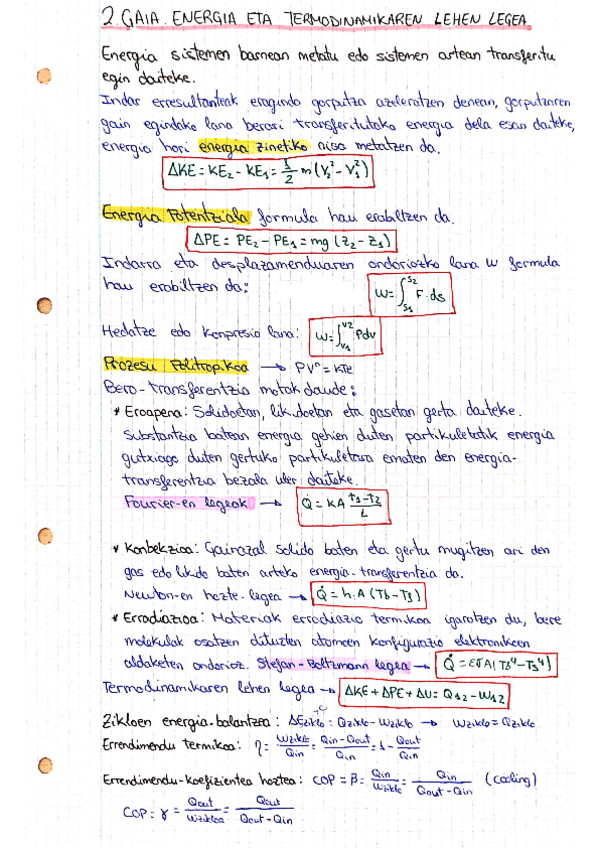 2. GAIA. ENERGIA ETA TERMODINAMIKAREN LEHEN LEGEA
Energia sistemen barnean metatu edo sistemen artean transferitu
egin daiteke.
Indar erresultanteak eragindo gorputza azeleratzen denean, gorputzaren
gain egindako lana berari transferitutako energia dela esan daiteke,
energia hori energia zinetiko gisa metatzen da.
ΔKE = KE₂ - KE₁ = 1/2 m (V₂² - V₁²)
Energia Potentziala formula hau erabiltzen da.
ΔPE = PE₂ - PE₁ = mg (z₂ - z₁)
Indarra eta desplazamenduaren ondoriozko lana W formula
hau erabiltzen da: W = ∫_{S₁}^{S₂} F · ds
Hedatze edo konpresio lana: W = ∫_{V₁}^{V₂} Pdv
Prozesu Politropikoa → PVⁿ = KTE
Bero-transferentzia motak daude:
* Eroapena: Solidoetan, likidoetan eta gasetan gerta daiteke.
Substantzia batean energia gehien duten partikuletatik energia
gutxiago duten gertuko partikuletara ematen den energia-
transferentzia bezala uler daiteke.
Fourier-en legeak → Q̇ = KA (T₁-T₂)/L
* Konbekzioa: Gainazal solido baten eta gertu mugitzen ari den
gas edo likido baten arteko energia-transferentzia da.
Newton-en hozte-legea → Q̇ = h·A (Tb - Tf)
* Erradiazioa: Materiak erradiazio termikoa igorotzen du, bere
molekulak osatzen dituzten atomoen konfigurazio elektronikoen
aldaketen ondorioz. Stefan-Boltzmann legea → Q̇ = εσA (Tb⁴ - Ts⁴)
Termodinamikaren lehen legea → ΔKE + ΔPE + ΔU = Q₁₂ - W₁₂
Zikloen energia-balantzea: ΔEziklo = Qziklo - Wziklo → Wziklo = Qziklo
Errendimendu termikoa: η = Wziklo/Qin = (Qin - Qout)/Qin = 1 - Qout/Qin
Errendimendu-koefizientea hoztea: COP = β = Qin/Wziklo = Qin/(Qout - Qin) (cooling)
COP = γ = Qout/Wzikloa = Qout/(Qout - Qin)